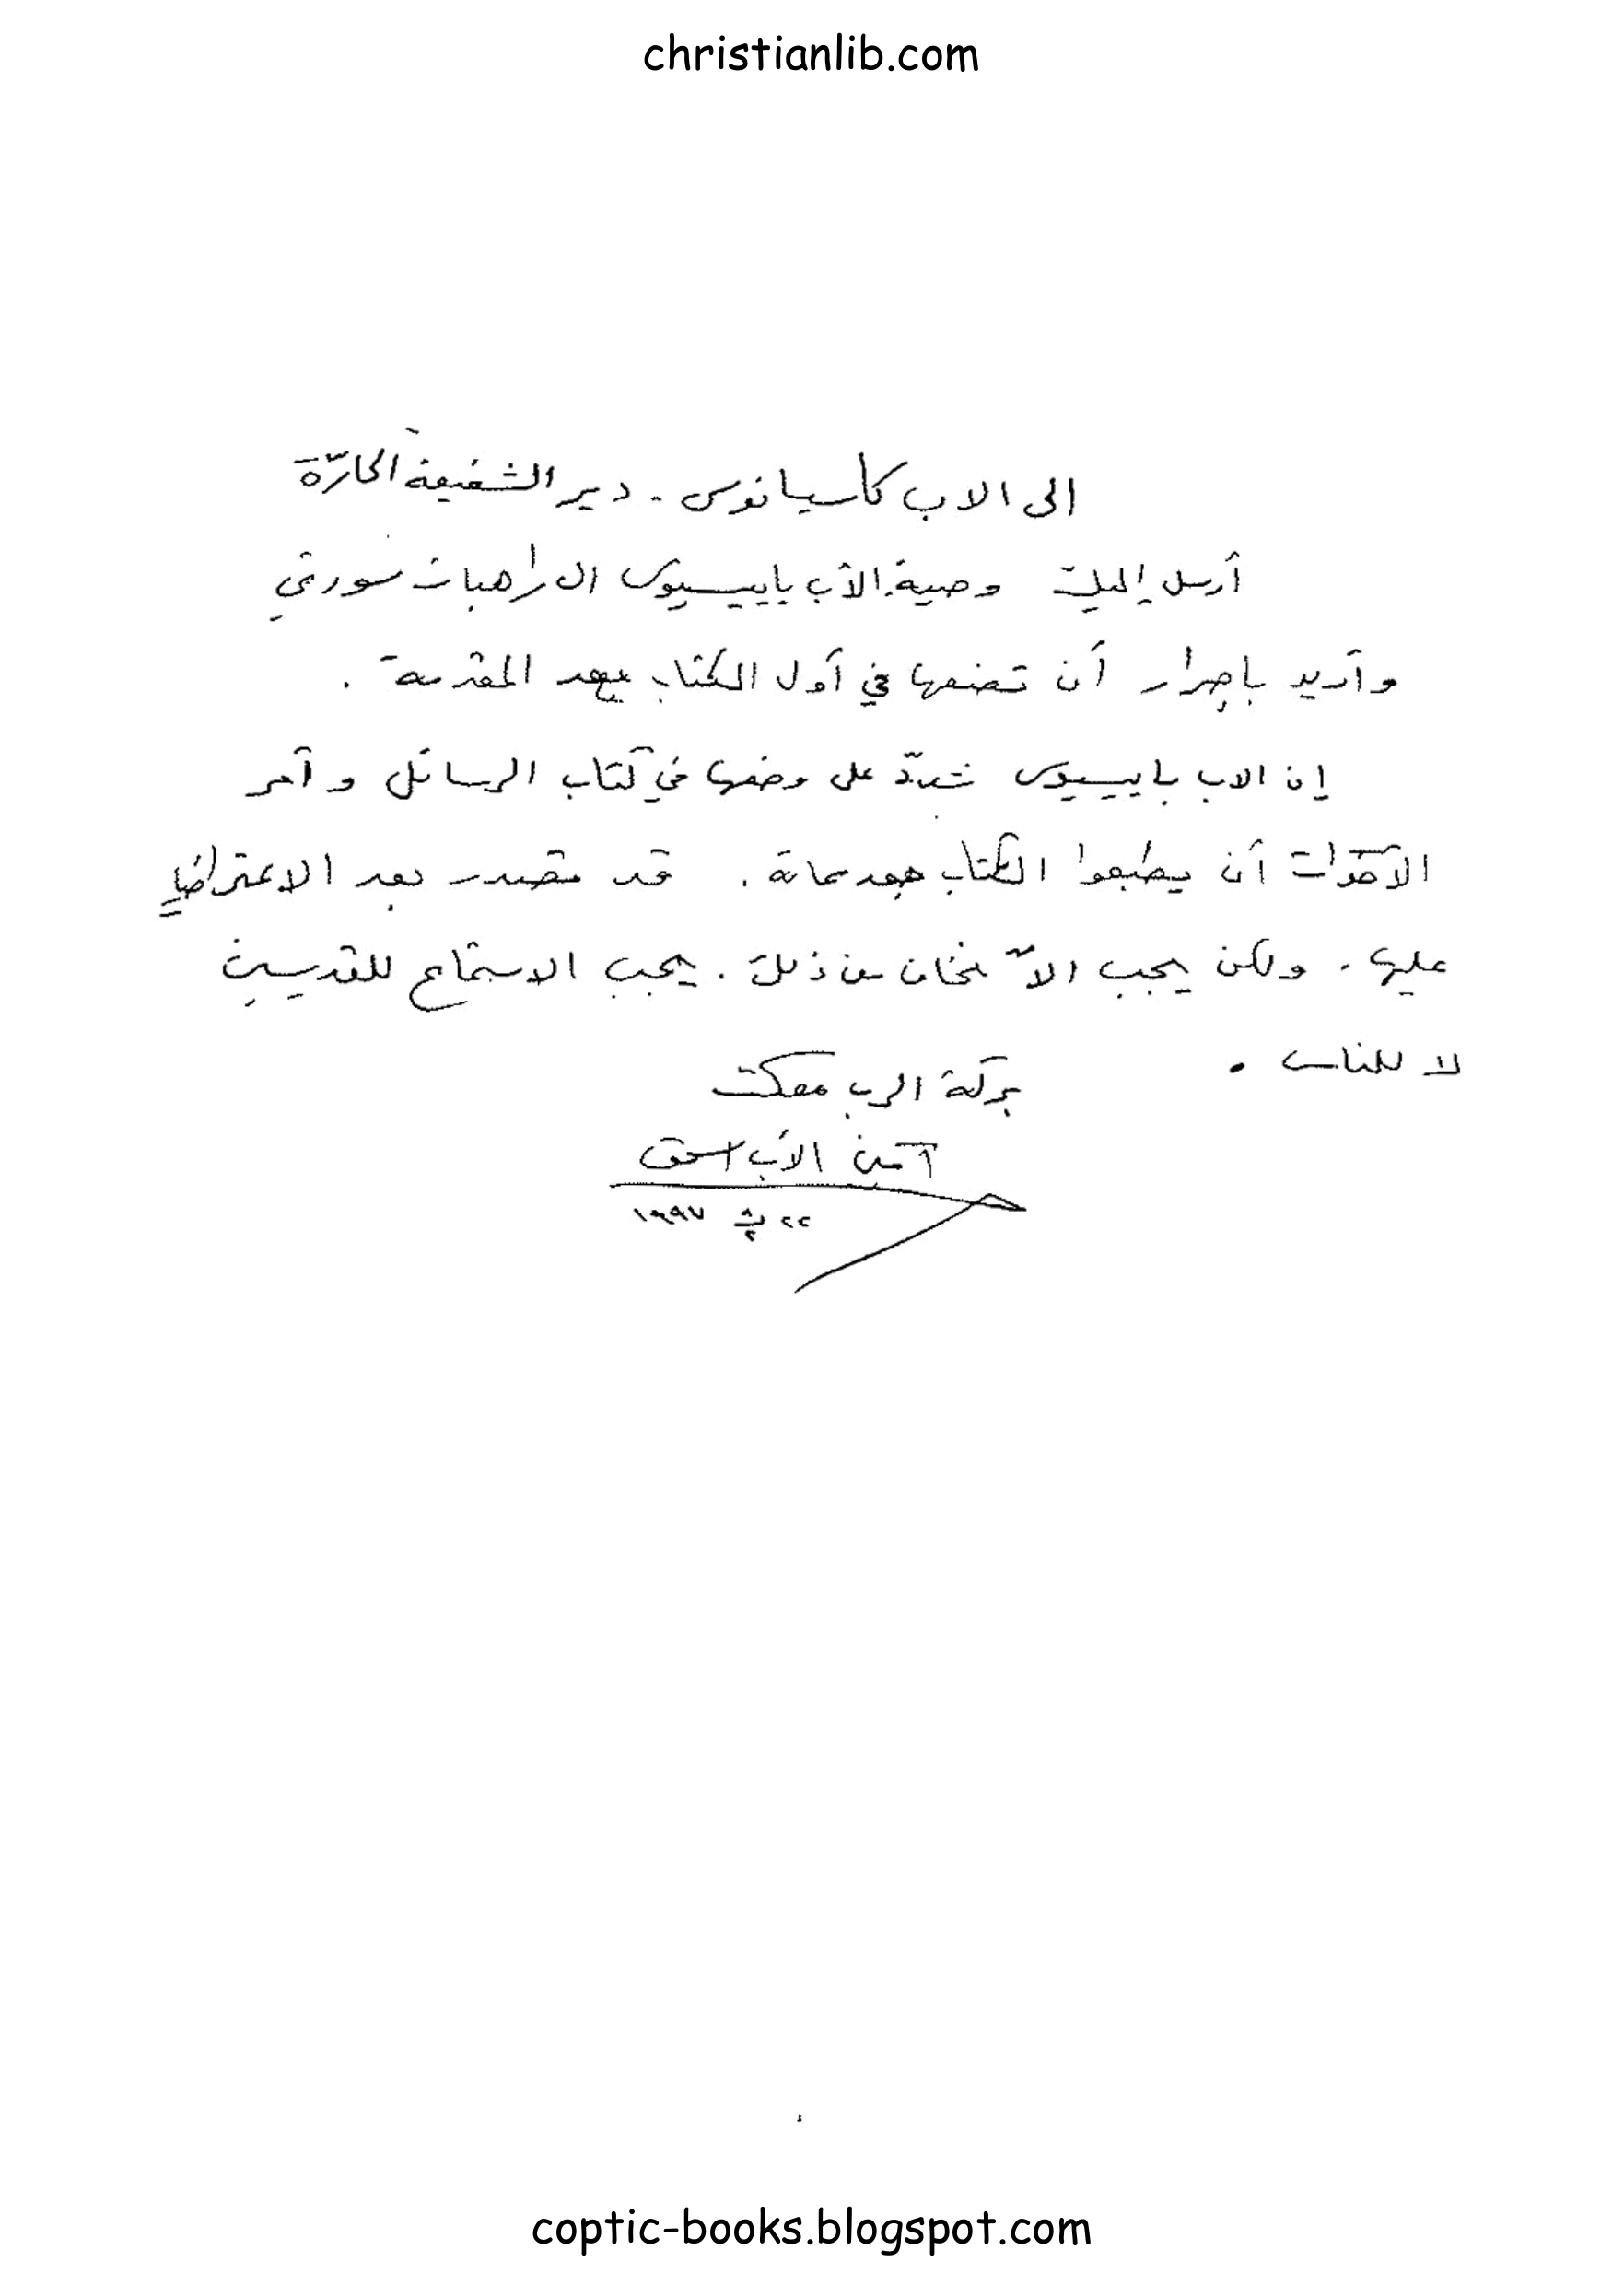 christianlib.com
الى الاب كاسيانوس - دير الشفيعة الحارّة
أرسل إليك وصية الأب باييسيوس الى راهبات سوروتي
وأريد باصرار أن تضعها في أول الكتاب بعد المقدمة .
إن الاب باييسيوس شدّد على وضعها في كتاب الرسائل وأمر
الأخوات أن يطبعوا الكتاب بعد مماته . قد تصدر بعد الاعتراضات
عليها . ولكن يجب الاّ تخاف من ذلك . يجب الاستماع للقديسين
لا للناس .
بركة الرب معكم
آمين الأب اسحق
٢٢ ١٩٩٧
coptic-books.blogspot.com